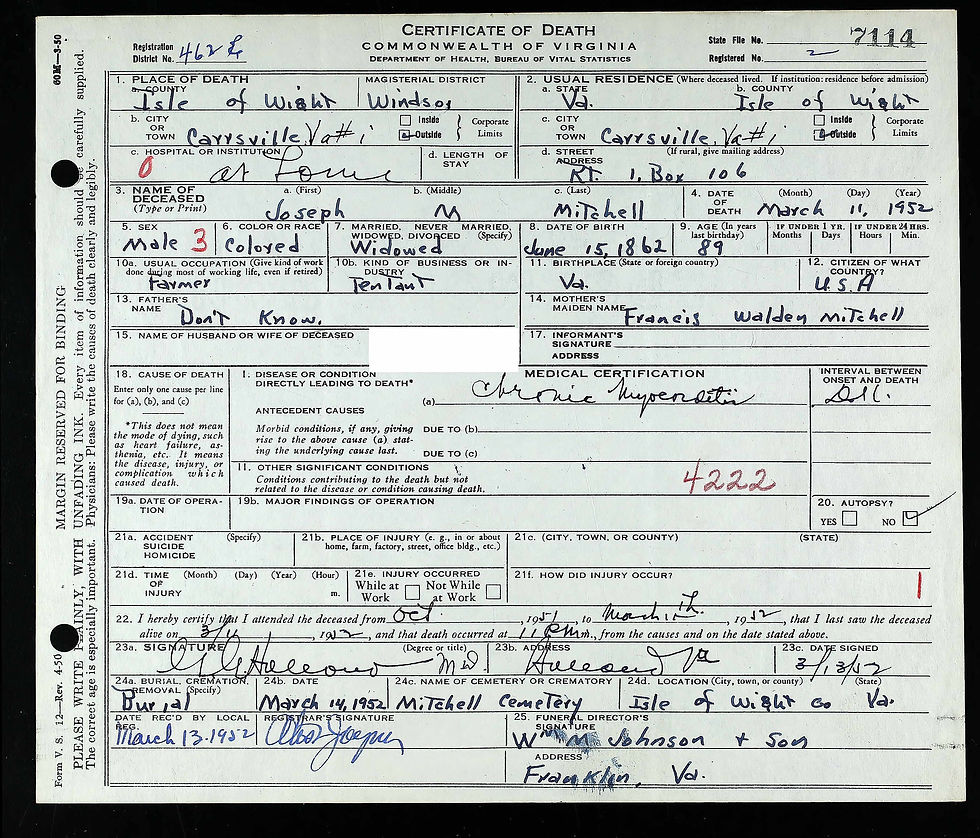 CERTIFICATE OF DEATH
COMMONWEALTH OF VIRGINIA
DEPARTMENT OF HEALTH, BUREAU OF VITAL STATISTICS
Registration District No. 462
State File No. 7114
Registered No. 2
1. PLACE OF DEATH
a. COUNTY
Isle of Wight
MAGISTERIAL DISTRICT
Windsor
b. CITY OR TOWN
Carrsville, Va #1
Inside
Outside
Corporate Limits
c. HOSPITAL OR INSTITUTION
0 at Home
d. LENGTH OF STAY
2. USUAL RESIDENCE (Where deceased lived. If institution: residence before admission)
a. STATE
Va.
b. COUNTY
Isle of Wight
c. CITY OR TOWN
Carrsville, Va #1
Inside
Outside
Corporate Limits
d. STREET ADDRESS (If rural, give mailing address)
RT. 1, Box 106
3. NAME OF DECEASED (Type or Print)
a. (First)
Joseph
b. (Middle)
M
c. (Last)
Mitchell
4. DATE OF DEATH (Month) (Day) (Year)
March 11, 1952
5. SEX
Male 3
6. COLOR OR RACE
Colored
7. MARRIED, NEVER MARRIED, WIDOWED, DIVORCED (Specify)
Widowed
8. DATE OF BIRTH
June 15, 1862
9. AGE (In years last birthday)
89
IF UNDER 1 YR.
Months Days
IF UNDER 24 HRS.
Hours Min.
10a. USUAL OCCUPATION (Give kind of work done during most of working life, even if retired)
Farmer
10b. KIND OF BUSINESS OR INDUSTRY
Tentant
11. BIRTHPLACE (State or foreign country)
Va.
12. CITIZEN OF WHAT COUNTRY?
U.S.A
13. FATHER'S NAME
Don't Know.
14. MOTHER'S MAIDEN NAME
Francis Walden Mitchell
15. NAME OF HUSBAND OR WIFE OF DECEASED
17. INFORMANT'S SIGNATURE
ADDRESS
18. CAUSE OF DEATH
Enter only one cause per line for (a), (b), and (c)
*This does not mean the mode of dying, such as heart failure, asthenia, etc. It means the disease, injury, or complication which caused death.
MEDICAL CERTIFICATION
I. DISEASE OR CONDITION DIRECTLY LEADING TO DEATH*
(a) Chronic Myocarditis
INTERVAL BETWEEN ONSET AND DEATH
D.K.
ANTECEDENT CAUSES
Morbid conditions, if any, giving rise to the above cause (a) stating the underlying cause last.
DUE TO (b)
DUE TO (c)
II. OTHER SIGNIFICANT CONDITIONS
Conditions contributing to the death but not related to the disease or condition causing death.
4222
19a. DATE OF OPERATION
19b. MAJOR FINDINGS OF OPERATION
20. AUTOPSY?
YES NO
21a. ACCIDENT SUICIDE HOMICIDE (Specify)
21b. PLACE OF INJURY (e. g., in or about home, farm, factory, street, office bldg., etc.)
21c. (CITY, TOWN, OR COUNTY) (STATE)
21d. TIME OF INJURY (Month) (Day) (Year) (Hour) m.
21e. INJURY OCCURRED
While at Work
Not While at Work
21f. HOW DID INJURY OCCUR?
1
22. I hereby certify that I attended the deceased from Oct, 1951, to March 11th, 1952, that I last saw the deceased
alive on 3/11 1952, and that death occurred at 11 P m., from the causes and on the date stated above.
23a. SIGNATURE (Degree or title)
M.D.
23b. ADDRESS
Holland Va
23c. DATE SIGNED
3/13/52
24a. BURIAL, CREMATION, REMOVAL (Specify)
Burial
24b. DATE
March 14, 1952
24c. NAME OF CEMETERY OR CREMATORY
Mitchell Cemetery
24d. LOCATION (City, town, or county) (State)
Isle of Wight Co Va.
DATE REC'D BY LOCAL REG.
March 13-1952
REGISTRAR'S SIGNATURE
25. FUNERAL DIRECTOR'S SIGNATURE
Wm M Johnson + Son
ADDRESS
Franklin, Va.
60M—3-50
Form V. S. 12—Rev. 4-50
MARGIN RESERVED FOR BINDING
PLEASE WRITE PLAINLY, WITH UNFADING INK. Every item of information should be carefully supplied.
The correct age is especially important. Physicians: Please write the causes of death clearly and legibly.